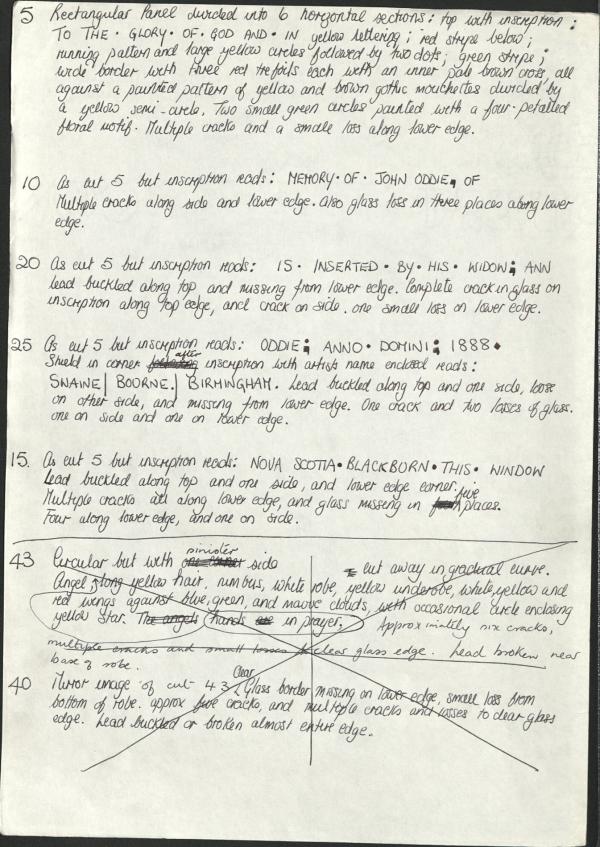 5 Rectangular Panel divided into 6 horizontal sections: top with inscription:
TO THE · GLORY · OF · GOD AND · IN yellow lettering; red stripe below;
running pattern and large yellow circles followed by two dots; green stripe;
wide border with three red trefoils each with an inner pale brown cross, all
against a painted pattern of yellow and brown gothic mouchettes divided by
a yellow semi-circle. Two small green circles painted with a four-petalled
floral motif. Multiple cracks and a small loss along lower edge.
10 As cut 5 but inscription reads: MEMORY · OF · JOHN ODDIE, OF
Multiple cracks along side and lower edge. Also glass loss in three places along lower
edge.
20 As cut 5 but inscription reads: IS · INSERTED · BY · HIS · WIDOW; ANN
Lead buckled along top and missing from lower edge. Complete crack in glass on
inscription along top edge, and crack on side. One small loss on lower edge.
25 As cut 5 but inscription reads: ODDIE; ANNO · DOMINI; 1888 ·
Shield in corner after inscription with artists name enclosed reads:
SWAINE| BOURNE.| BIRMINGHAM. Lead buckled along top and one side, loose
on other side, and missing from lower edge. One crack and two losses of glass.
one on side and one on lower edge.
15. As cut 5 but inscription reads: NOVA SCOTIA · BLACKBURN · THIS · WINDOW
Lead buckled along top and one side, and lower edge corner.
Multiple cracks all along lower edge, and glass missing in five places.
Four along lower edge, and one on side.
43 Circular but with sinister side cut away in gradual curve.
Angel, long yellow hair, nimbus, white robe, yellow underobe, white, yellow and
red wings against blue, green, and mauve clouds, with occasional circle enclosing
yellow star. The angels hands in prayer. Approximately six cracks,
multiple cracks and small losses to clear glass edge. Lead broken near
base of robe.
40 Mirror image of cut 43. Clear Glass border missing on lower edge, small loss from
bottom of robe. approx five cracks, and multiple cracks and losses to clear glass
edge. Lead buckled or broken almost entire edge.